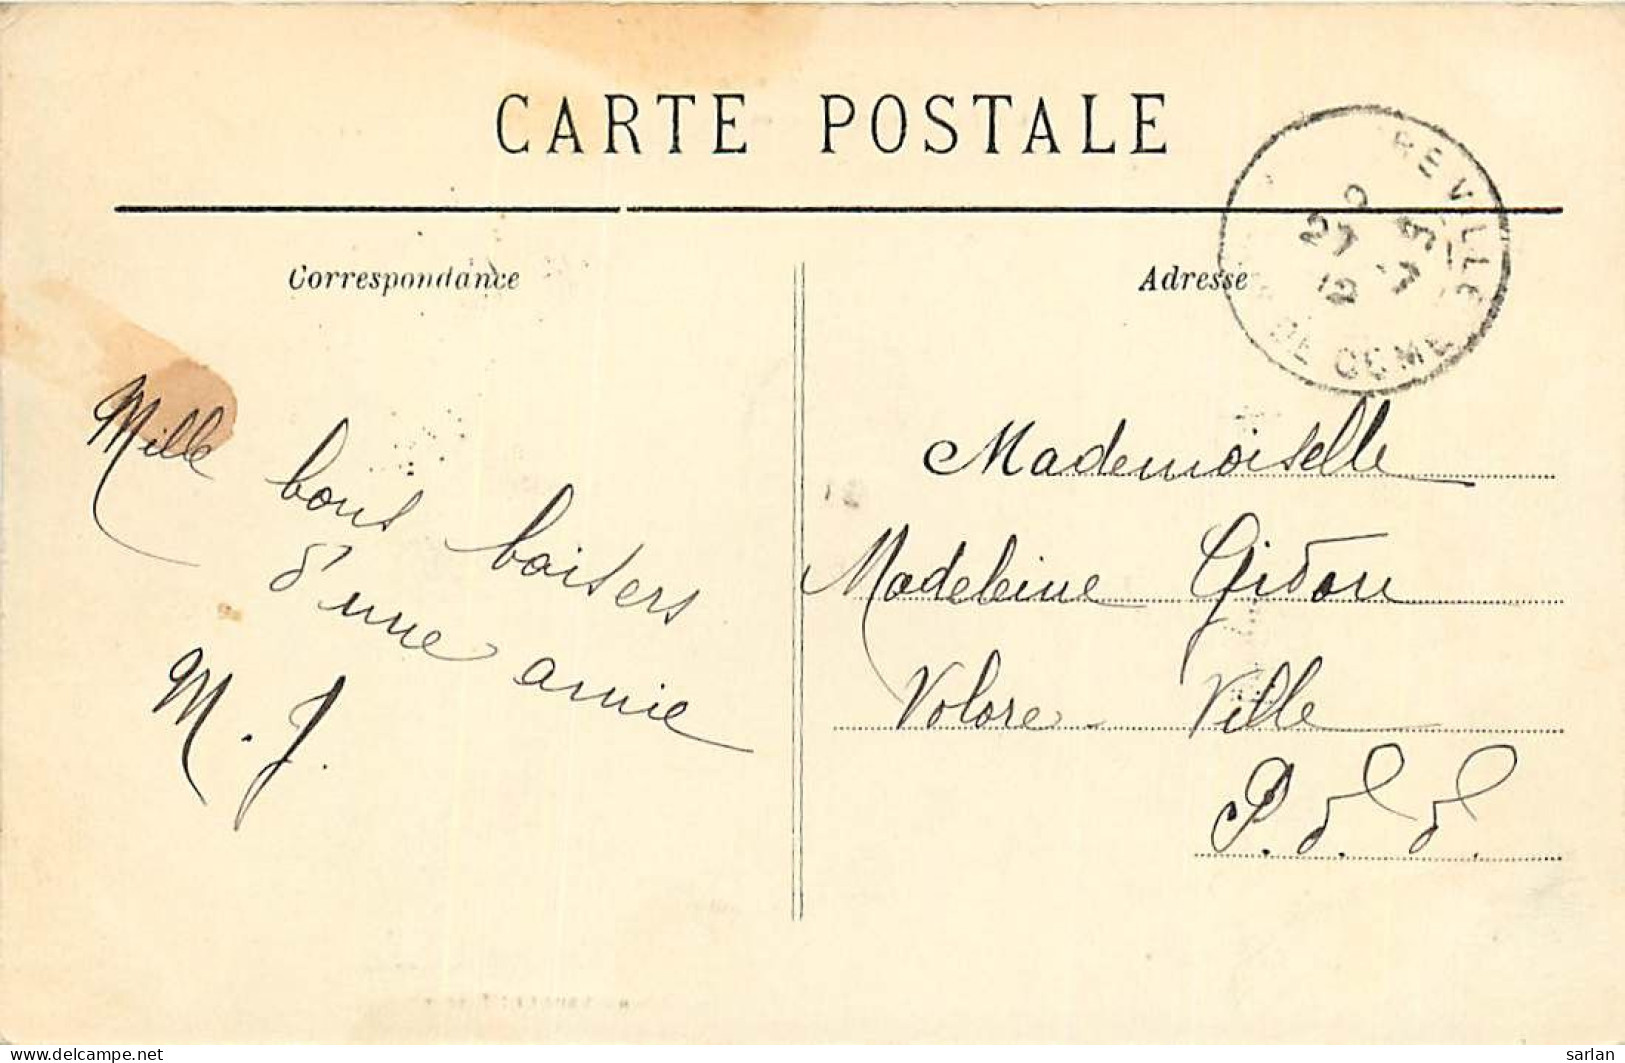 CARTE POSTALE
Correspondance
Adresse
REVILLE
27 -7
12
DE DOME
Mille bons baisers
d'une amie
M. J.
Mademoiselle
Madeleine Gidon
Volore-Ville
P. d. d.
delcampe.net
sarlan